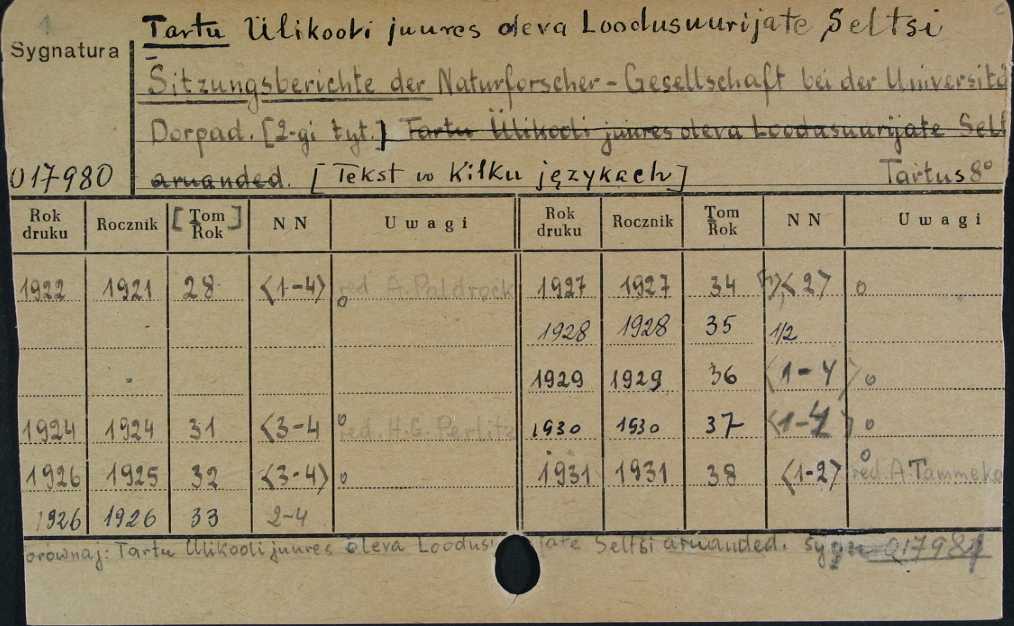 Tartu Ülikooli juures oleva Loodusuurijate Seltsi
Sygnatura
Sitzungsberichte der Naturforscher-Gesellschaft bei der Universitä
Dorpad. [2-gi tyt.] Tartu Ülikooli juures oleva Loodusuurijate Selt
017980 aruanded. [Tekst w kilku językach] Tartus 8°
Rok druku Rocznik [Tom] Rok NN Uwagi Rok druku Rocznik Tom Rok NN Uwagi
1922 1921 28 <1-4> o red A. Paldrock 1927 1927 34 <27 o
1928 1928 35 1/2
1929 1929 36 <1-4> o
1924 1924 31 <3-4 o red. H.G. Perlitz 1930 1930 37 <1-4> o
1926 1925 32 <3-4> o 1931 1931 38 <1-2> o red. A. Tammeka
1926 1926 33 2-4
orównaj: Tartu Ülikooli juures oleva Loodusu jate Seltsi aruanded. Sygn. 017981